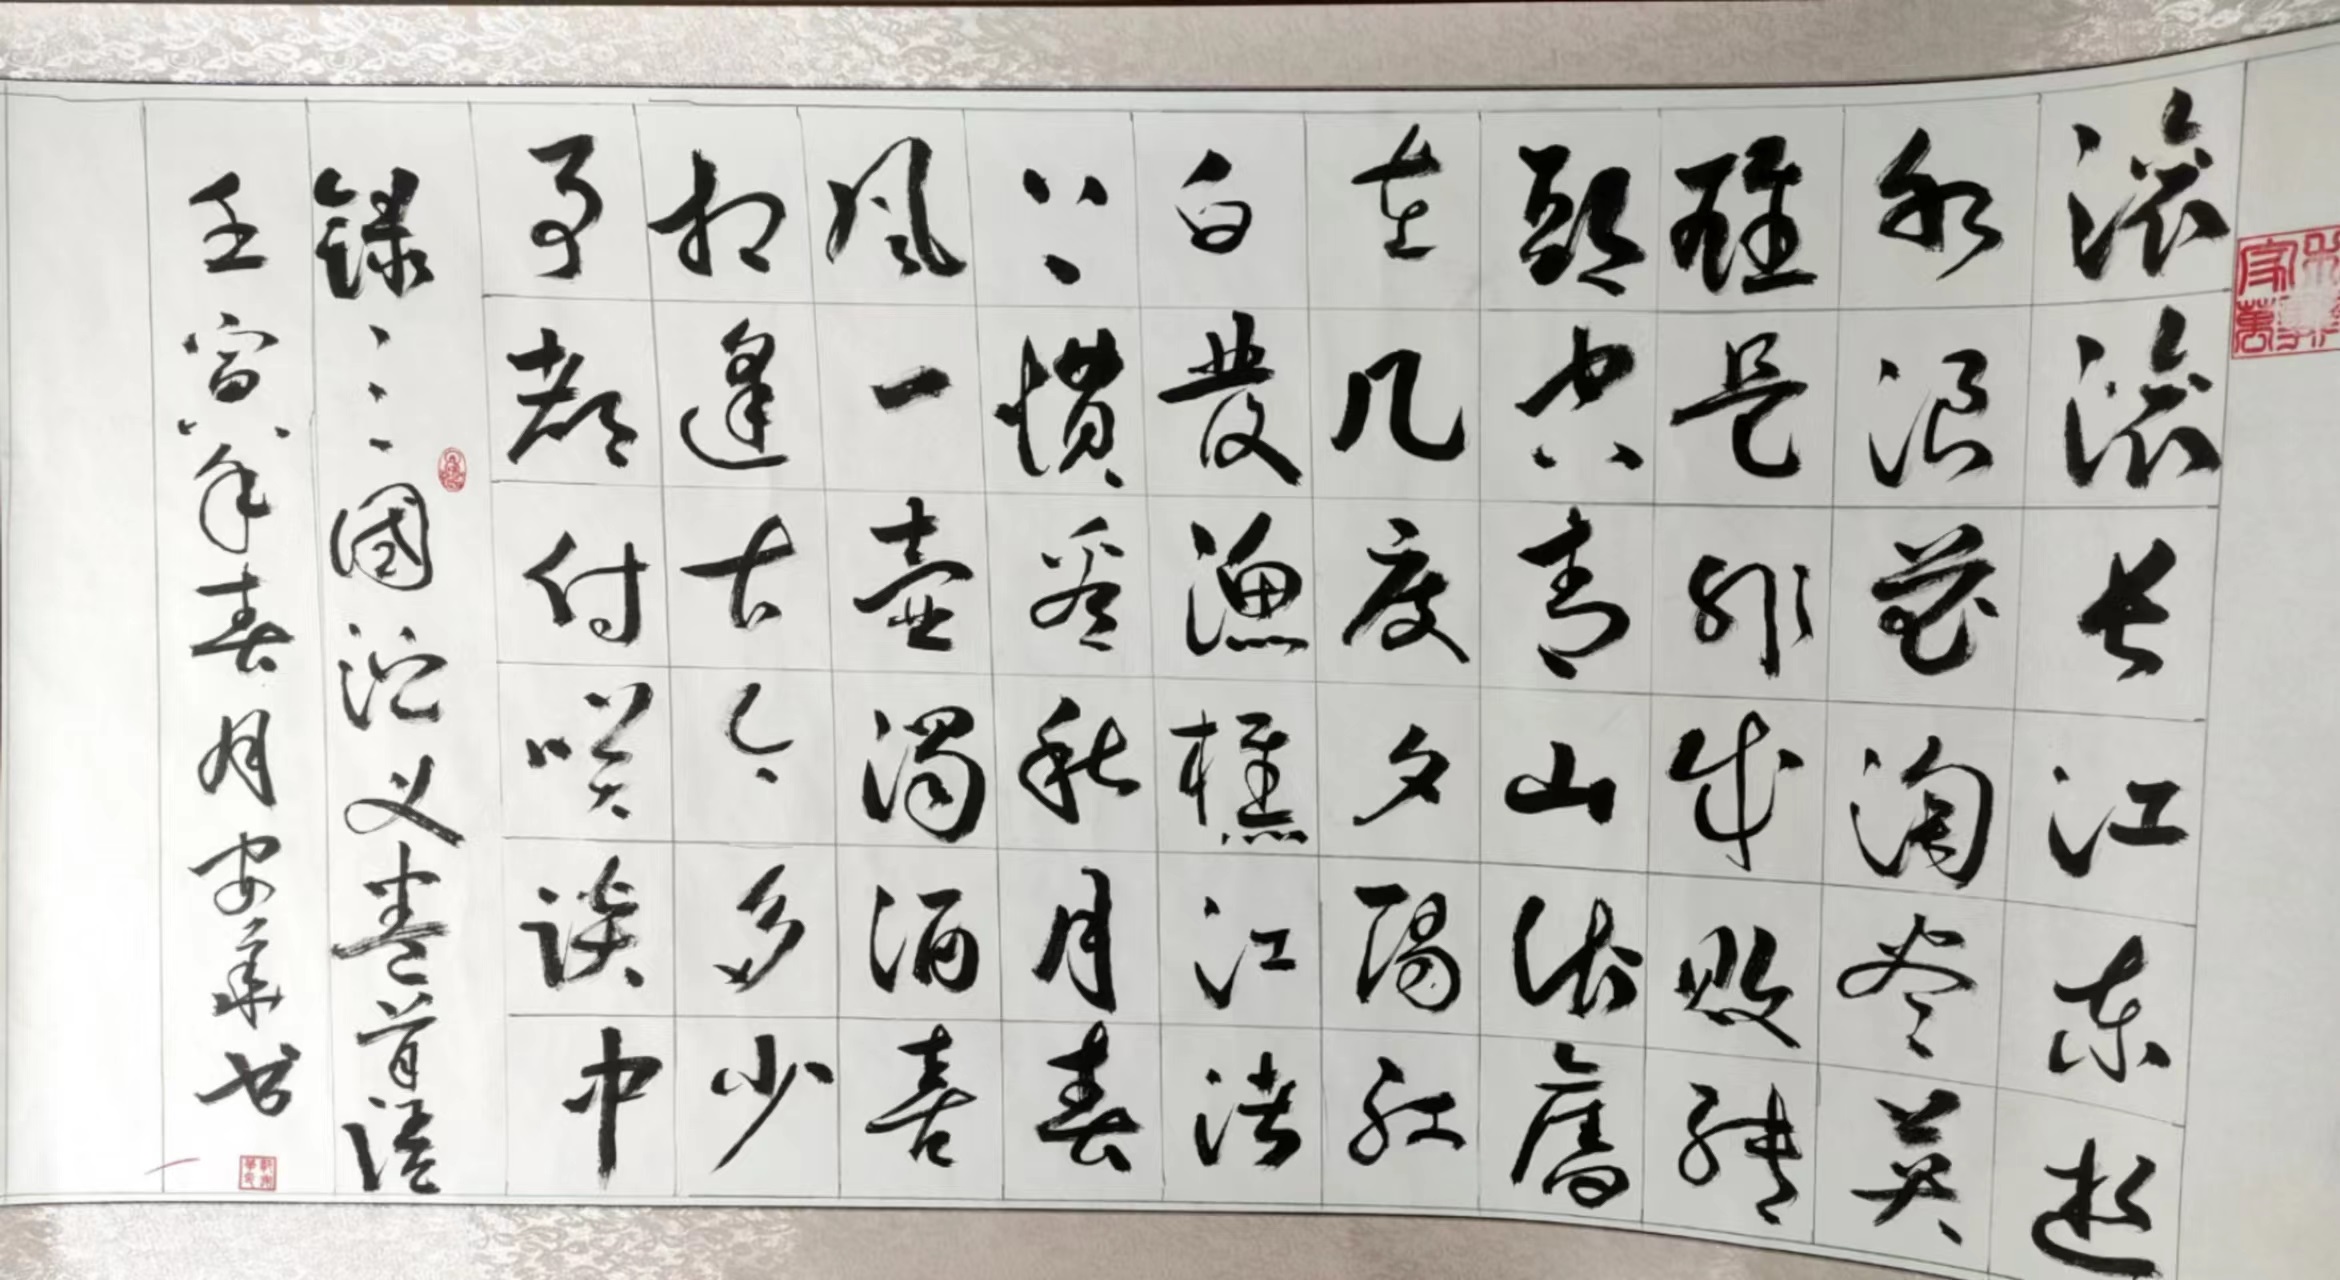 滚滚长江东逝
水浪花淘尽英
雄是非成败转
頭空青山依舊
在几度夕陽红
白發漁樵江渚
上惯看秋月春
风一壶濁酒喜
相逢古今多少
事都付笑谈中
錄三國演义卷首语
壬寅年春月书